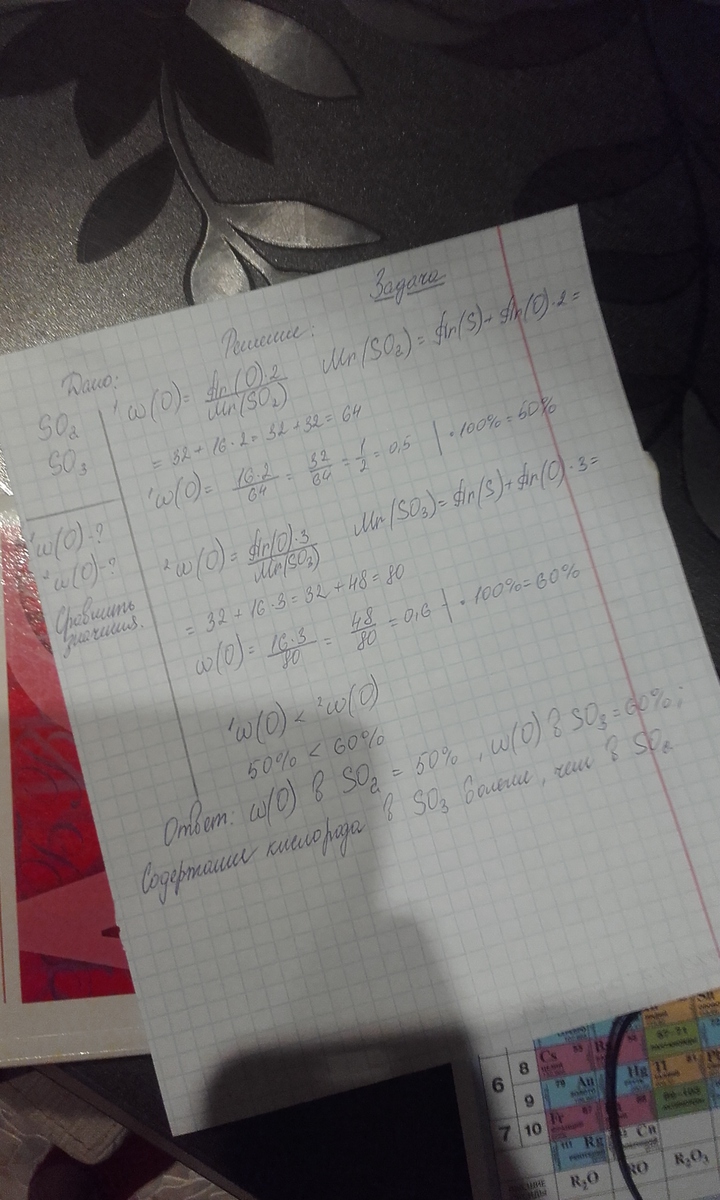 Задача
Дано:
Решение:
SO₂
SO₃
¹w(O)-?
²w(O)-?
Сравнить
значения.
¹w(O) = Ar(O)·2 / Mr(SO₂) Mr(SO₂) = Ar(S) + Ar(O)·2 =
= 32 + 16·2 = 32 + 32 = 64
¹w(O) = 16·2 / 64 = 32 / 64 = 1 / 2 = 0,5 | · 100% = 50%
²w(O) = Ar(O)·3 / Mr(SO₂) Mr(SO₃) = Ar(S) + Ar(O)·3 =
= 32 + 16·3 = 32 + 48 = 80
w(O) = 16·3 / 80 = 48 / 80 = 0,6 | · 100% = 60%
¹w(O) < ²w(O)
50% < 60%
Ответ: w(O) в SO₂ = 50%, w(O) в SO₃ = 60%;
Содержание кислорода в SO₃ больше, чем в SO₂
6 8 Cs 55
9 79 Au Hg
7 10 Fr 87
111 Rg Cn
R₂O RO R₂O₃